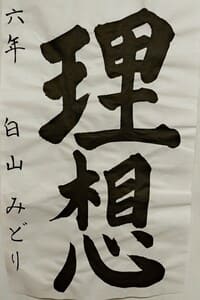 理想
六年 白山みどり